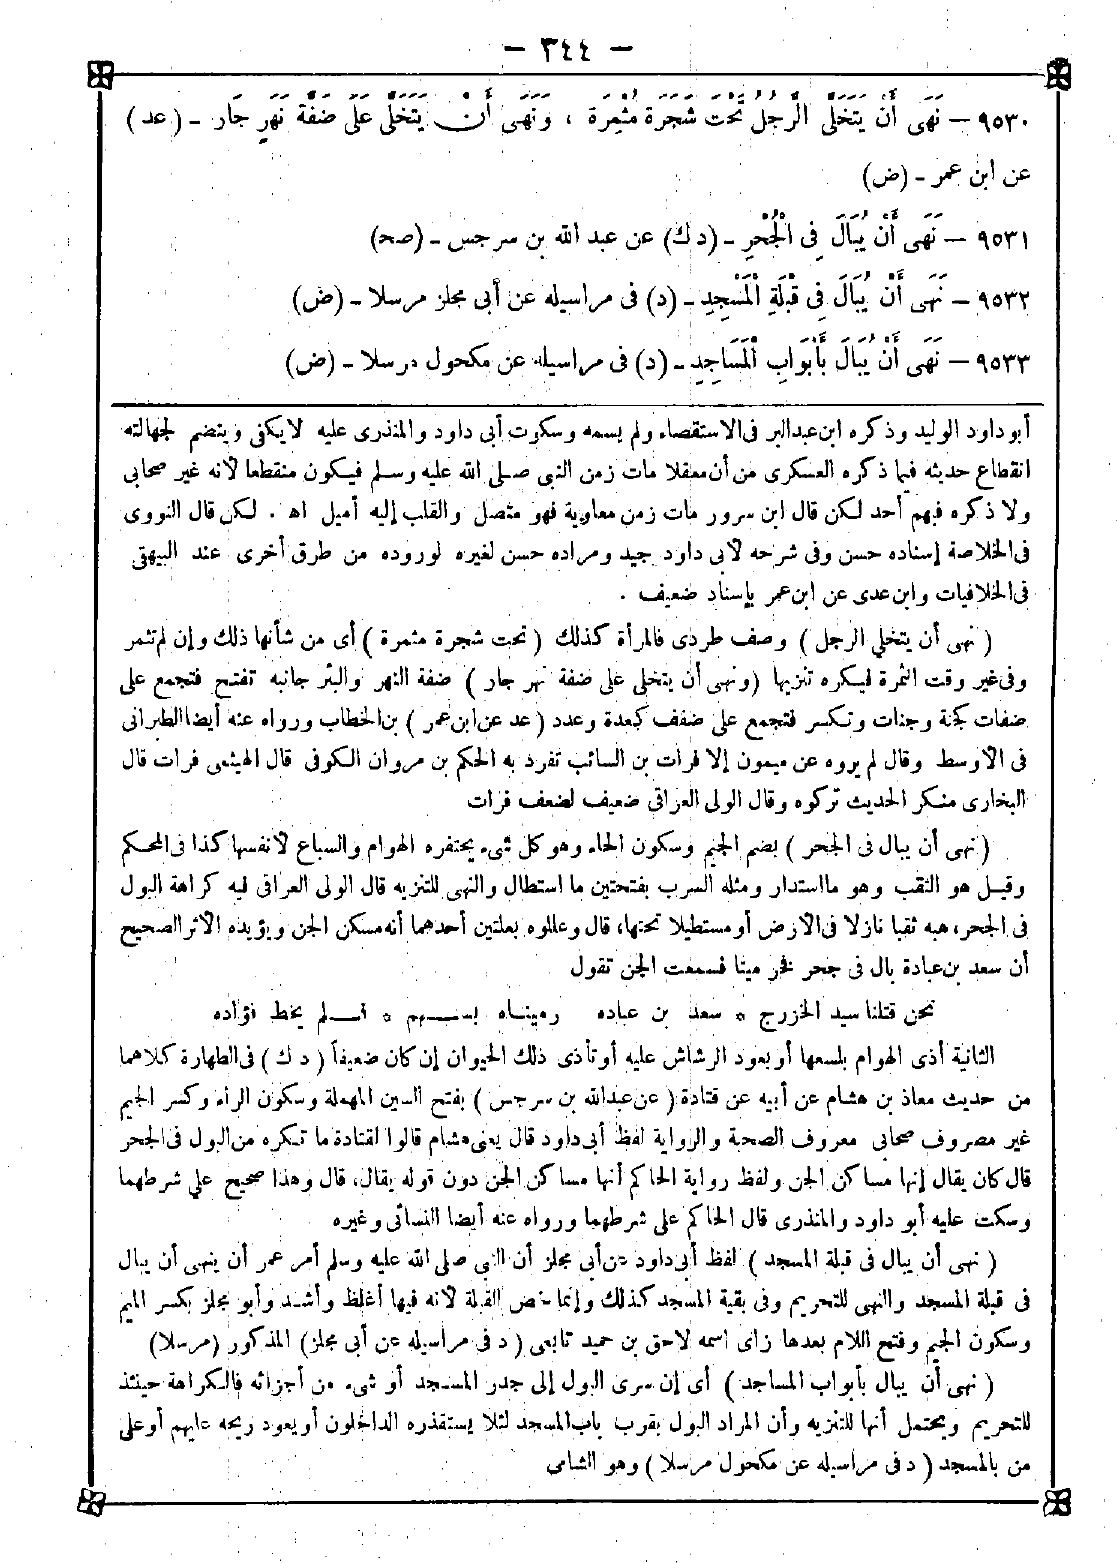 - ٣٤٤ -
٩٥٣٠ - نَهَى أَنْ يَتَخَلَّى الرَّجُلُ تَحْتَ شَجَرَةٍ مُثْمِرَةٍ ، وَنَهَى أَنْ يَتَخَلَّى عَلَى ضَفَّةِ نَهَرٍ جَارٍ - ( عد )
عن ابن عمر - (ض)
٩٥٣١ - نَهَى أَنْ يُبَالَ فِى الْجُحْرِ - (د ك) عن عبد الله بن سرجس - (صح)
٩٥٣٢ - نَهَى أَنْ يُبَالَ فِى قِبْلَةِ الْمَسْجِدِ - (د) فى مراسيله عن أبى مجلز مرسلا - (ض)
٩٥٣٣ - نَهَى أَنْ يُبَالَ بِأَبْوَابِ الْمَسَاجِدِ - (د) فى مراسيله عن مكحول مرسلا - (ض)
أبو داود الوليد وذكره ابن عبد البر فى الاستقصاء ولم يسمه وسكوت أبى داود والمنذرى عليه لا يكفى وينضم لجهالته
انقطاع حديثه فيما ذكره العسكرى من أن معقلا مات زمن النبى صلى الله عليه وسلم فيكون منقطعا لأنه غير صحابى
ولا ذكره فيهم أحد لكن قال ابن سرور مات زمن معاوية فهو متصل والقلب إليه أميل اه . لكن قال النووى
فى الخلاصة إسناده حسن وفى شرحه لأبى داود جيد ومراده حسن لغيره لوروده من طرق أخرى عند البيهقى
فى الخلافيات وابن عدى عن ابن عمر بإسناد ضعيف .
( نهى أن يتخلى الرجل ) وصف طردى فالمرأة كذلك ( تحت شجرة مثمرة ) أى من شأنها ذلك وإن لم تثمر
وفى غير وقت الثمرة فيكره تنزيها ( ونهى أن يتخلى على ضفة نهر جار ) ضفة النهر والبئر جانبه تفتح فتجمع على
ضفات كجنة وجنات وتكسر فتجمع على ضفف كعدة وعدد ( عد عن ابن عمر ) بن الخطاب ورواه عنه أيضا الطبرانى
فى الأوسط وقال لم يروه عن ميمون إلا فرات بن السائب تفرد به الحكم بن مروان الكوفى قال الهيثمى فرات قال
البخارى منكر الحديث تركوه وقال الولى العراقى ضعيف لضعف فرات
( نهى أن يبال فى الجحر ) بضم الجيم وسكون الحاء وهو كل شىء يحتفره الهوام والسباع لأنفسها كذا فى المحكم
وقيل هو الثقب وهو ما استدار ومثله السرب بفتحتين ما استطال والنهى للتنزيه قال الولى العراقى فيه كراهة البول
فى الجحر، هبه ثقبا نازلا فى الأرض أو مستطيلا تحتها، قال وعللوه بعلتين أحدهما أنه مسكن الجن ويؤيده الأثر الصحيح
أن سعد بن عبادة بال فى جحر فخر ميتا فسمعت الجن تقول
نحن قتلنا سيد الخزرج * سعد بن عباده رميناه بسهم * فلم يخط فؤاده
الثانية أذى الهوام بلسعها أو بعود الرشاش عليه أو تأذى ذلك الحيوان إن كان ضعيفاً ( د ك ) فى الطهارة كلاهما
من حديث معاذ بن هشام عن أبيه عن قتادة ( عن عبد الله بن سرجس ) بفتح السين المهملة وسكون الراء وكسر الجيم
غير مصروف صحابى معروف الصحبة والرواية لفظ أبى داود قال يعنى هشام قالوا لقتادة ما تكره من البول فى الجحر
قال كان يقال إنها مساكن الجن ولفظ رواية الحاكم أنها مساكن الجن دون قوله يقال، قال وهذا صحيح على شرطهما
وسكت عليه أبو داود والمنذرى قال الحاكم على شرطهما ورواه عنه أيضا النسائى وغيره
( نهى أن يبال فى قبلة المسجد ) لفظ أبى داود عن أبى مجلز أن النبى صلى الله عليه وسلم أمر عمر أن ينهى أن يبال
فى قبلة المسجد والنهى للتحريم وفى بقية المسجد كذلك وإنما خص القبلة لأنه فيها أغلظ وأشد وأبو مجلز بكسر الميم
وسكون الجيم وفتح اللام بعدها زاى اسمه لاحق بن حميد تابعى ( د فى مراسيله عن أبى مجلز) المذكور (مرسلا)
( نهى أن يبال بأبواب المساجد ) أى إن سرى البول إلى جدر المسجد أو شىء من أجزائه فالكراهة حينئذ
للتحريم ويحتمل أنها للتنزيه وأن المراد البول بقرب باب المسجد لئلا يستقذره الداخلون أو يعود ريحه عليهم أو على
من بالمسجد ( د فى مراسيله عن مكحول مرسلا ) وهو الشامى